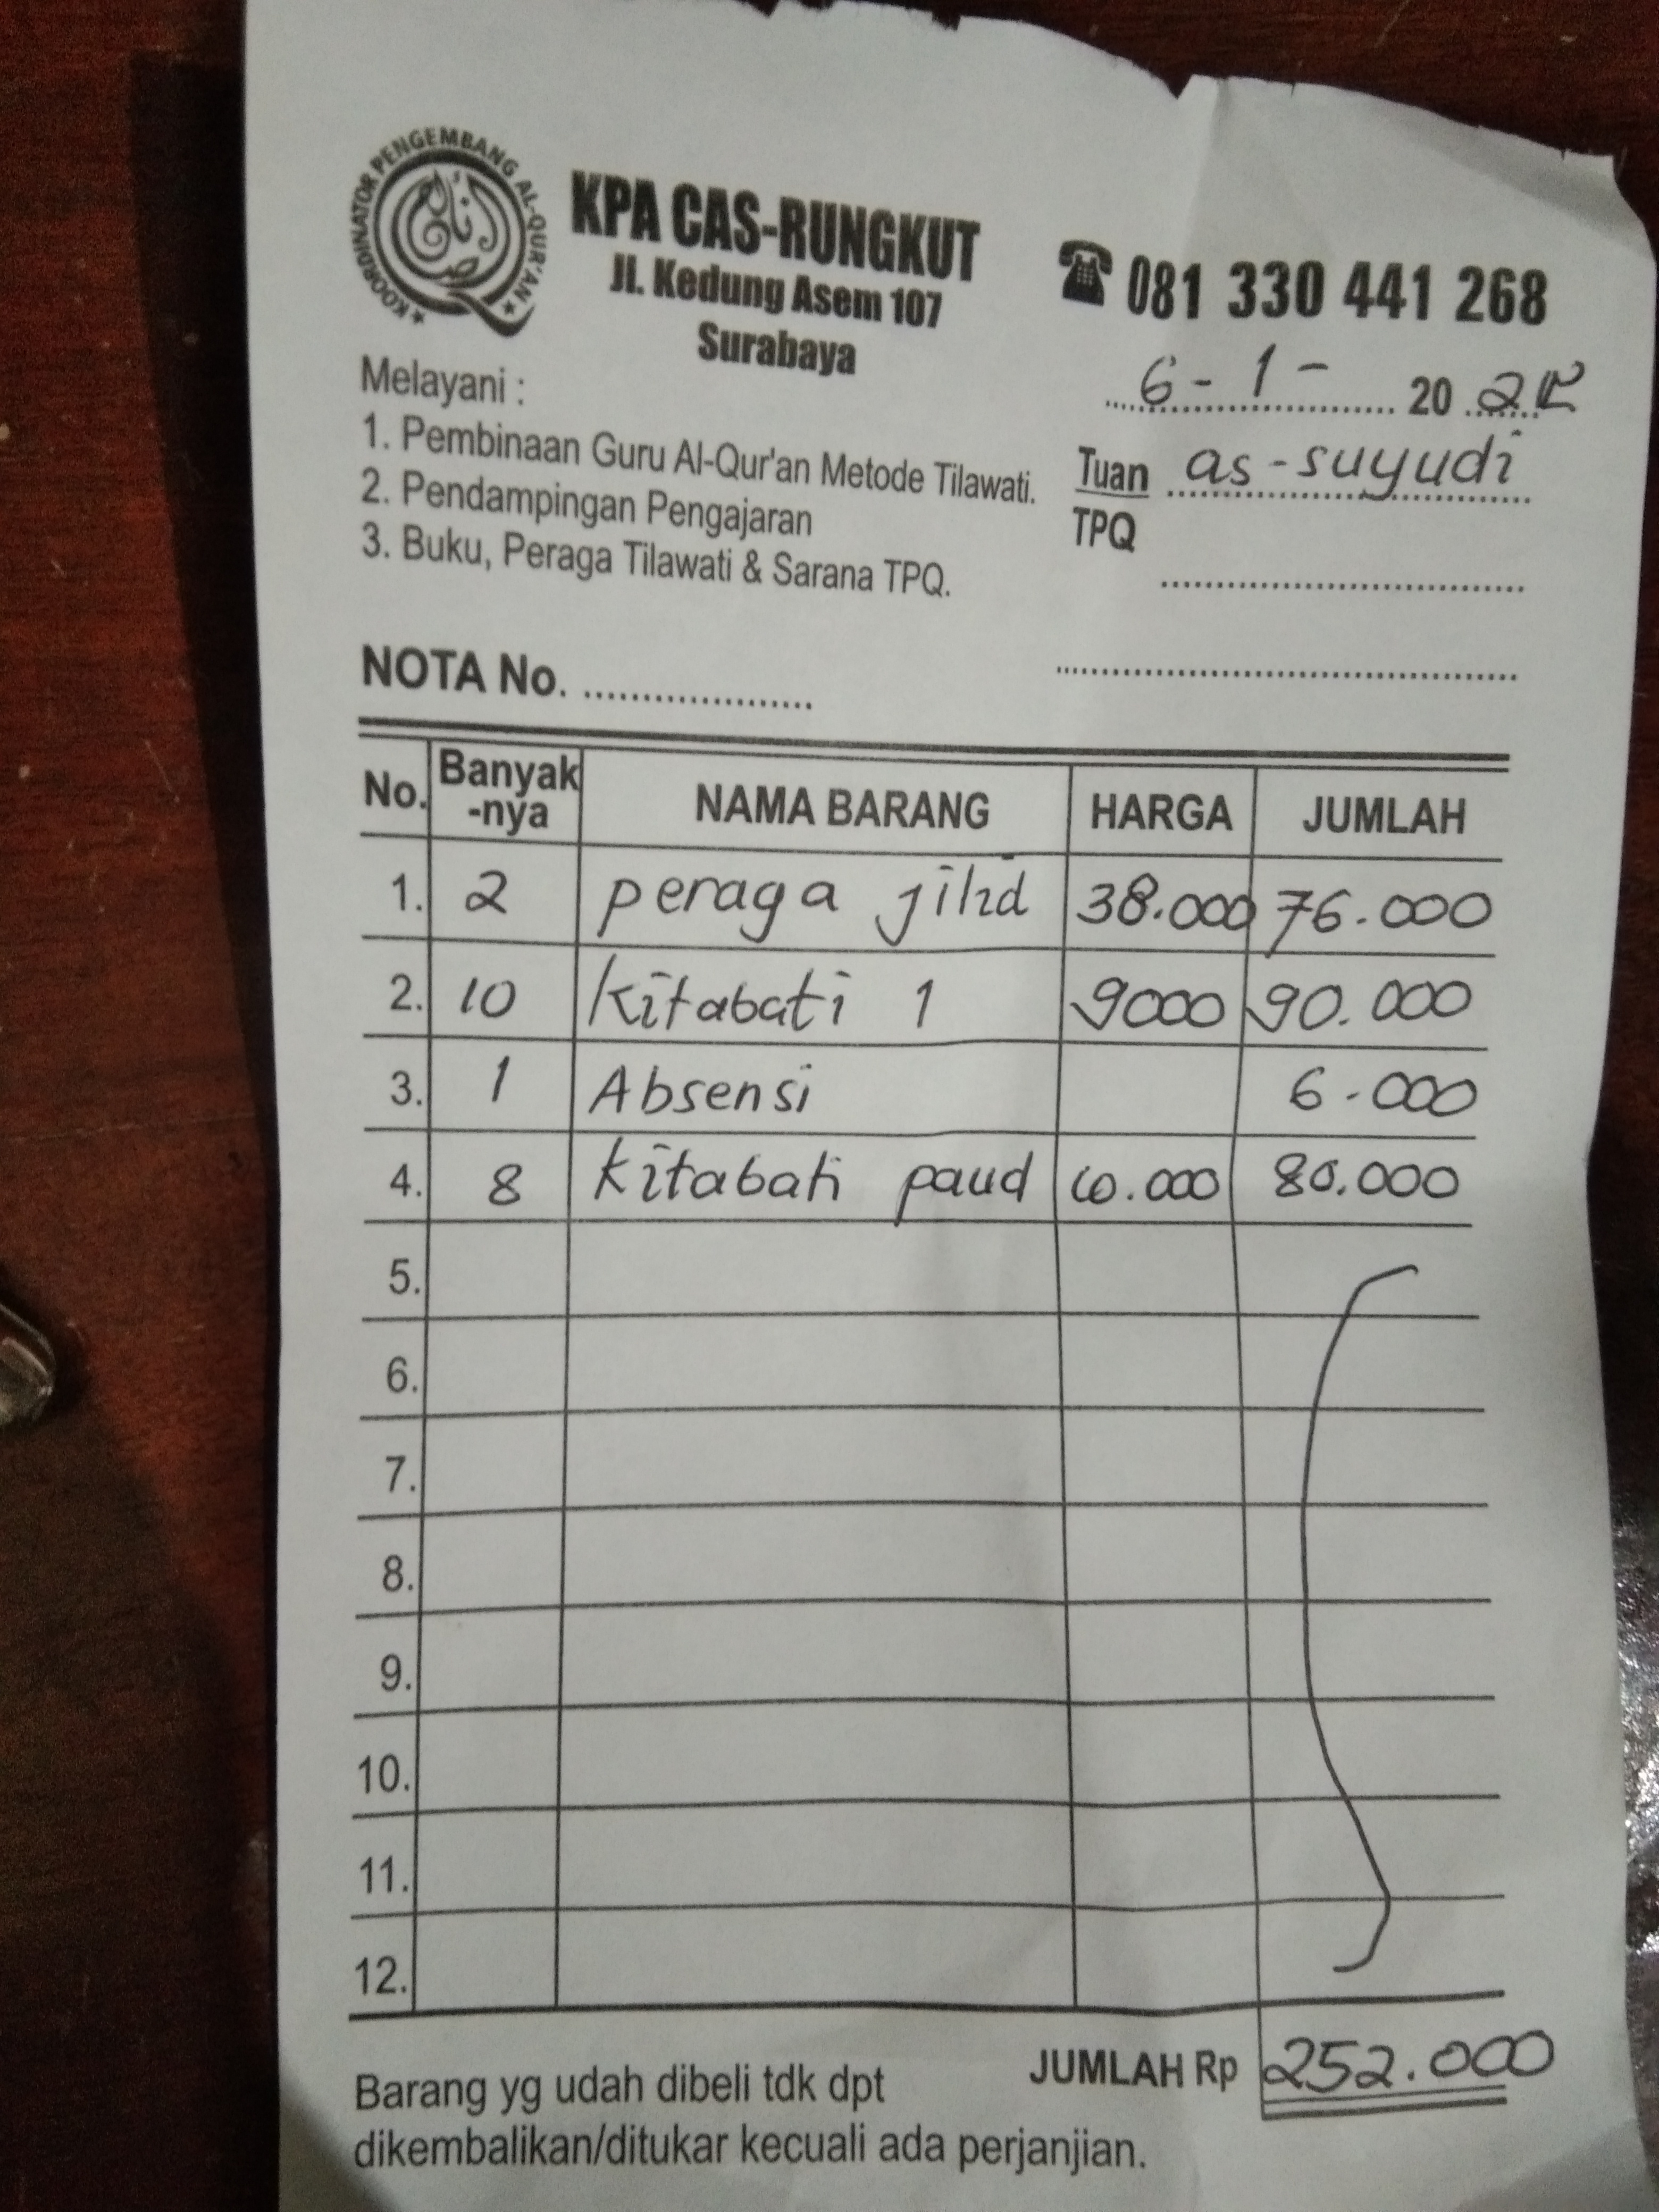 KOORDINATOR PENGEMBANG AL-QUR'AN
KPA CAS-RUNGKUT
Jl. Kedung Asem 107
Surabaya
081 330 441 268
6 - 1 - 20 25
Melayani :
1. Pembinaan Guru Al-Qur'an Metode Tilawati.
2. Pendampingan Pengajaran
3. Buku, Peraga Tilawati & Sarana TPQ.
Tuan as-suyudi
TPQ
NOTA No.
No. Banyak-nya NAMA BARANG HARGA JUMLAH
1. 2 peraga jilid 38.000 76.000
2. 10 Kitabati 1 9000 90.000
3. 1 Absensi 6.000
4. 8 Kitabati paud 10.000 80.000
5.
6.
7.
8.
9.
10.
11.
12.
JUMLAH Rp 252.000
Barang yg udah dibeli tdk dpt
dikembalikan/ditukar kecuali ada perjanjian.